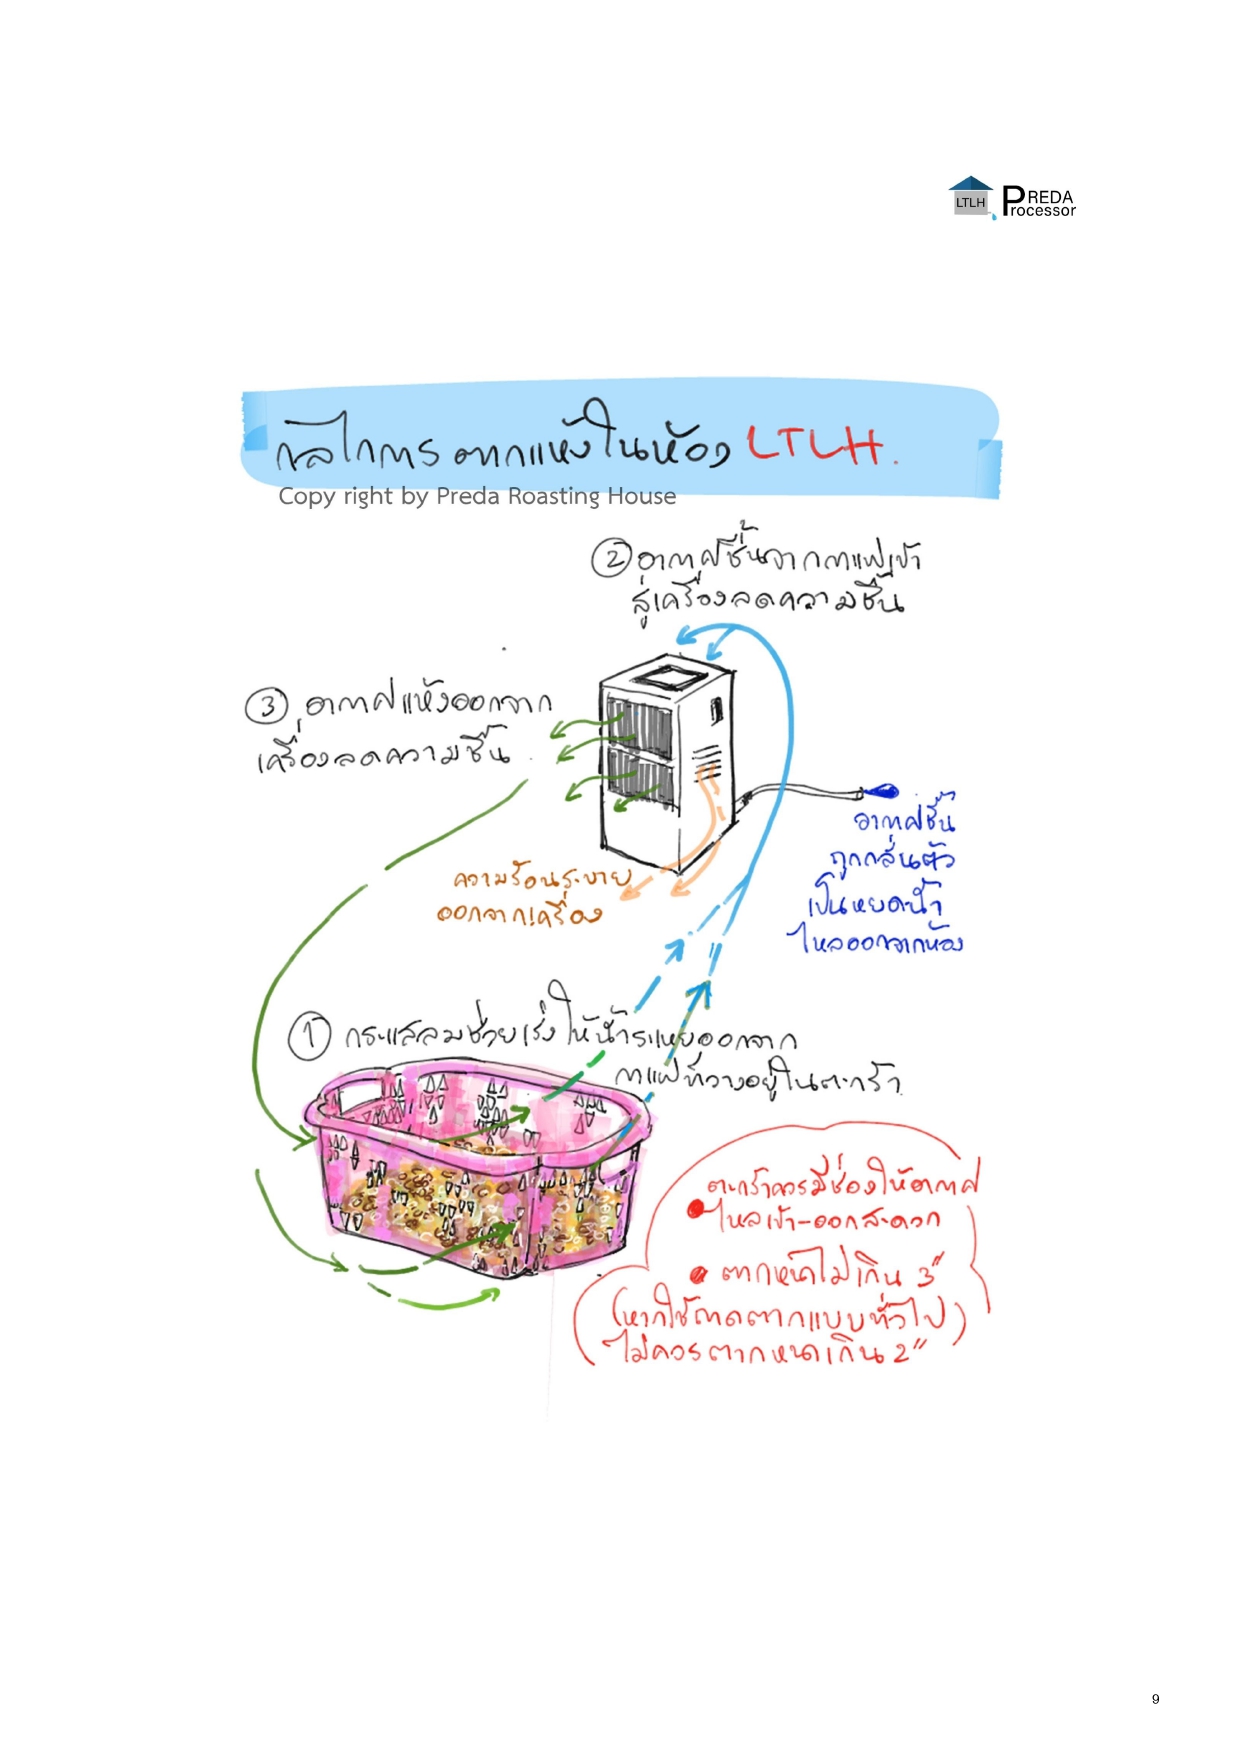 LTLH PREDA
Processor
กลไกการตากแห้งในห้อง LTLH.
Copy right by Preda Roasting House
② อากาศชื้นจากกาแฟเข้า
สู่เครื่องลดความชื้น
③ อากาศแห้งออกจาก
เครื่องลดความชื้น
อากาศชื้น
ถูกกลั่นตัว
เป็นหยดน้ำ
ไหลออกจากห้อง
ความร้อนระบาย
ออกจากเครื่อง
① กระแสลมช่วยเร่งให้น้ำระเหยออกจาก
กาแฟที่วางอยู่ในตะกร้า
• ตะกร้าควรมีช่องให้อากาศ
ไหลเข้า-ออกสะดวก
• ตากหนาไม่เกิน 3"
(หากใช้ถาดตากแบบทั่วไป)
ไม่ควรตากหนาเกิน 2"
9